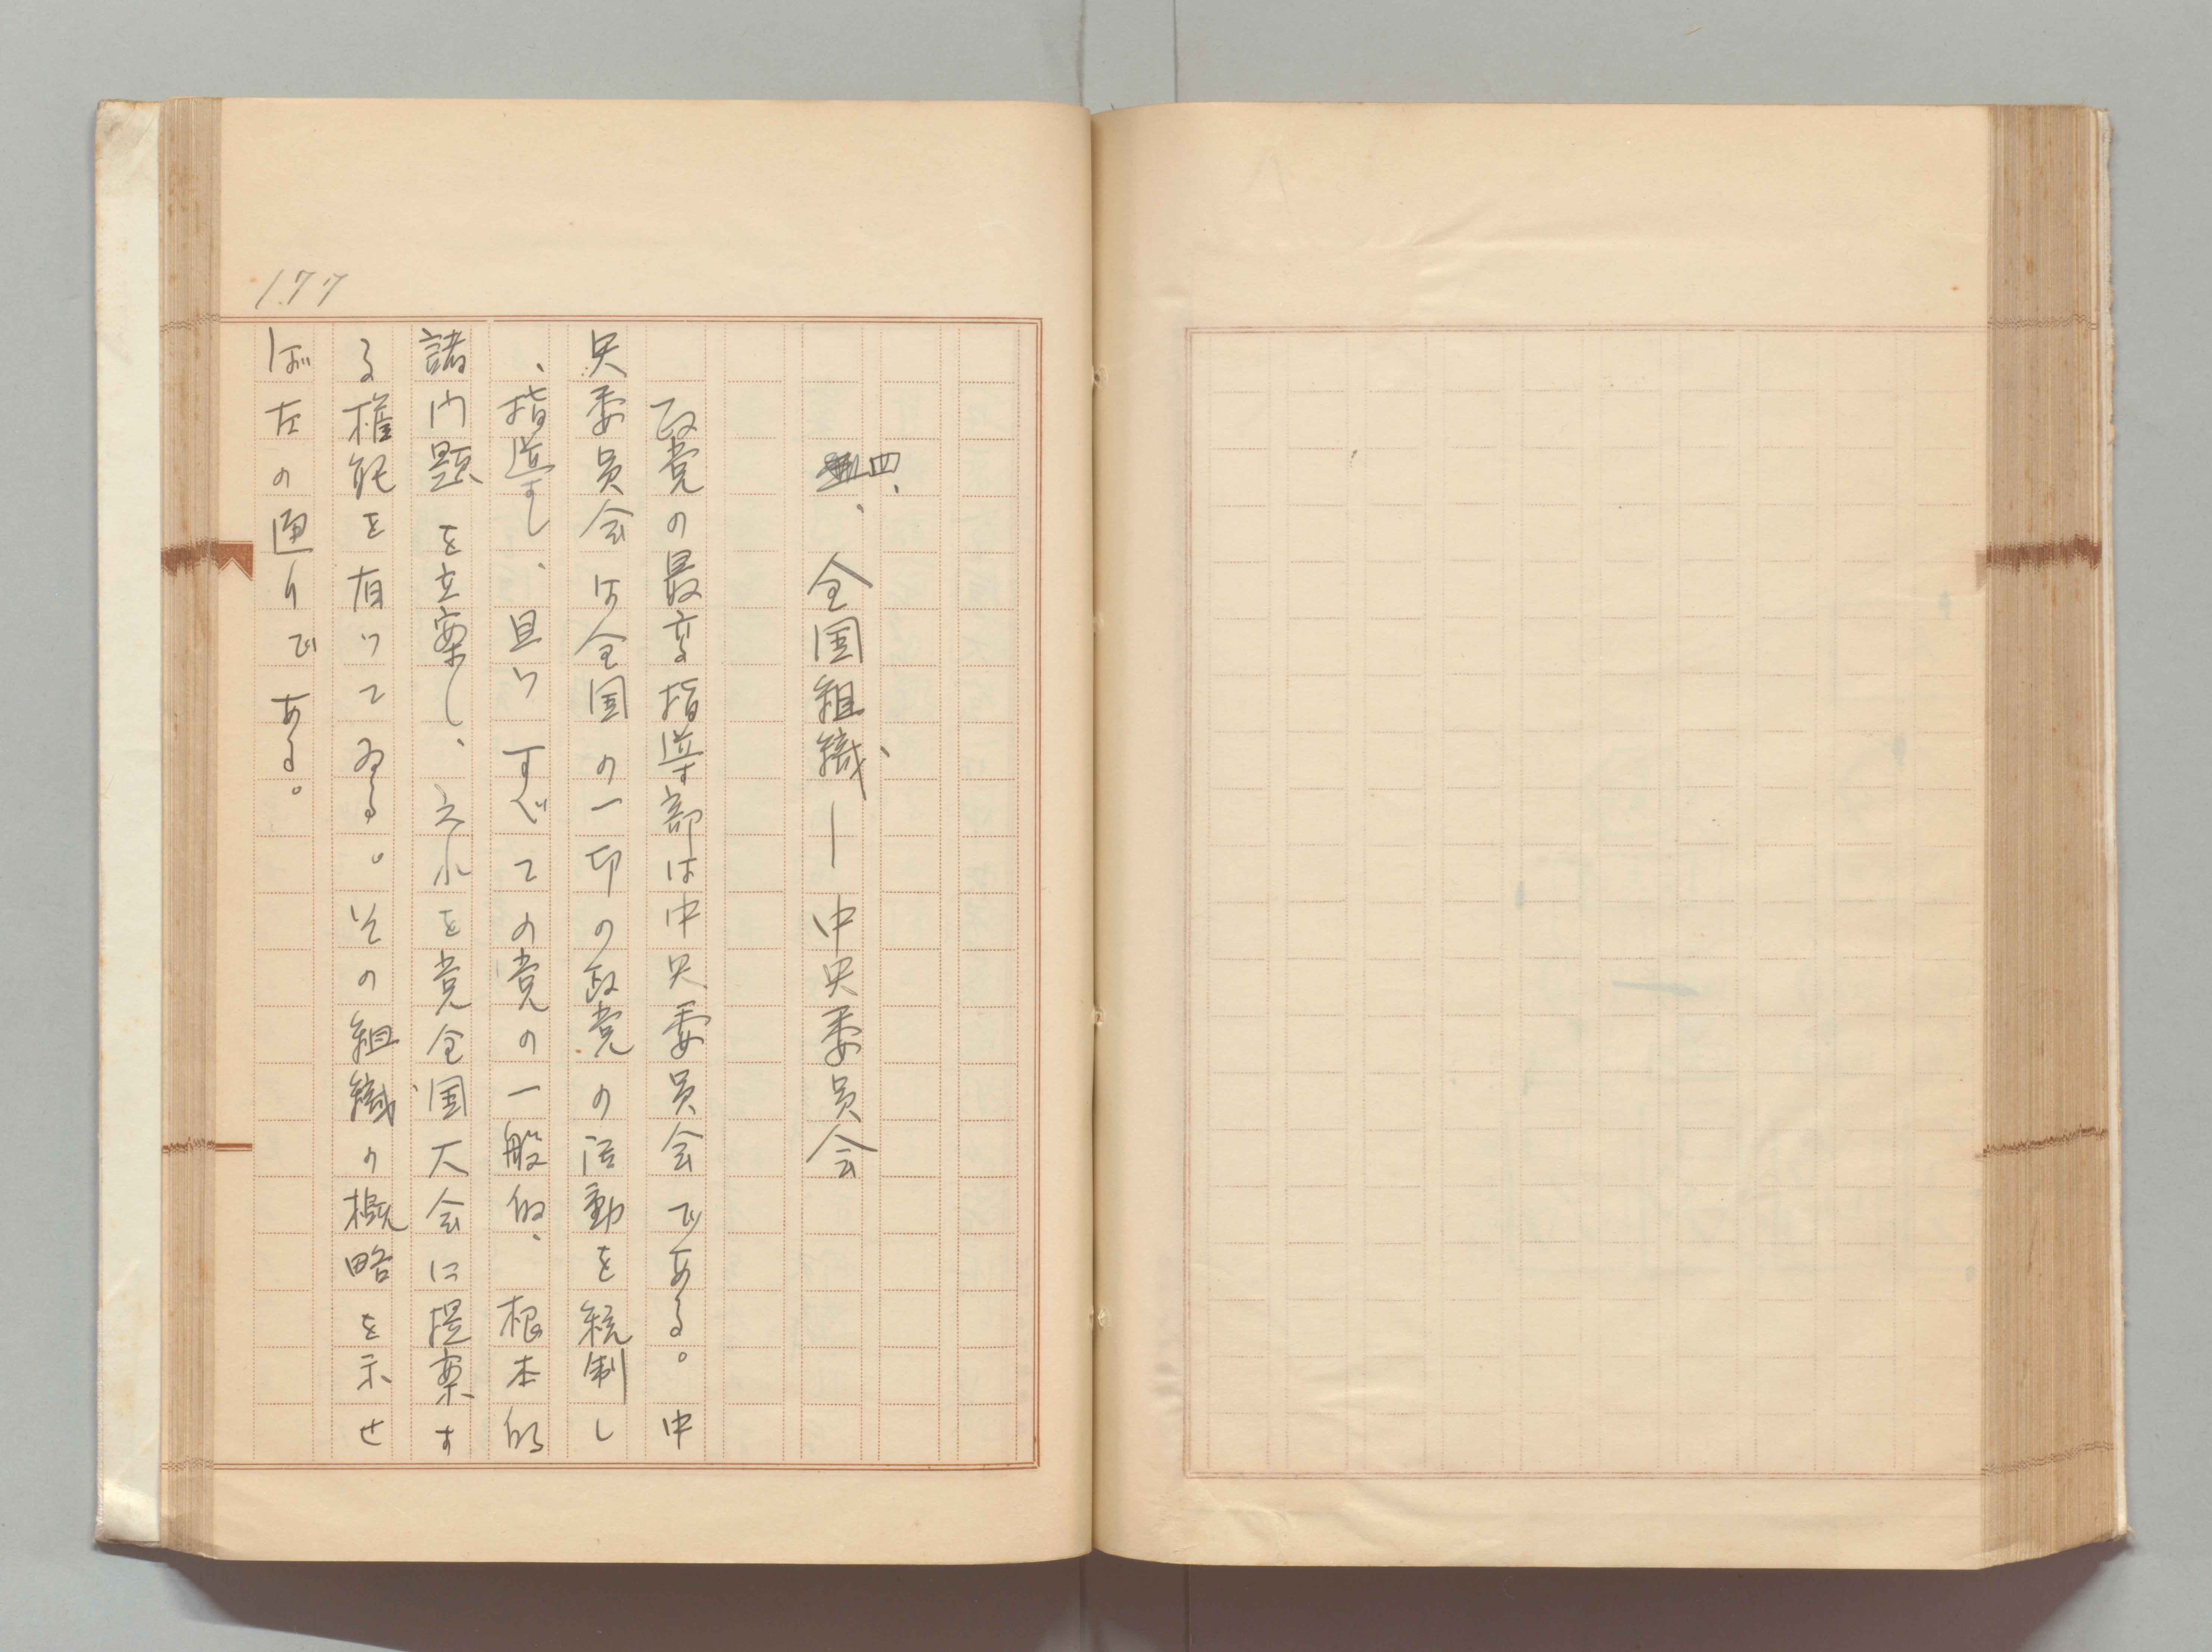 177
四、、全国組織―中央委員会
政党の最高指導部は中央委員会である。中
央委員会は全国の一切の政党の活動を統制し
、指導し、且つすべての党の一般的、根本的
諸問題を立案し、之れを党全国大会に提案す
る権能を有つてゐる。いその組織の概略を示せ
ば左の通りである。